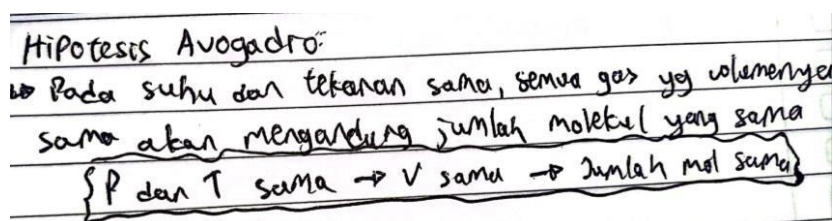 Hipotesis Avogadro:
→ Pada suhu dan tekanan sama, semua gas yg volumenya
sama akan mengandung jumlah molekul yang sama
{P dan T sama → V sama → Jumlah mol sama}